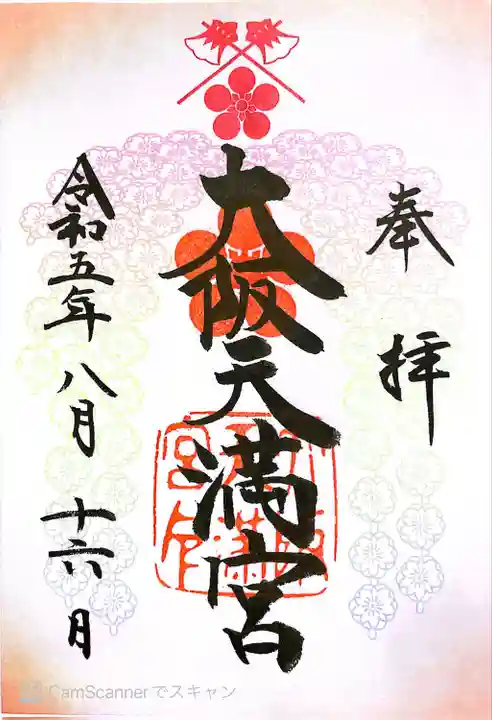 奉拝
大阪天満宮
令和五年八月十六日
CamScannerでスキャン